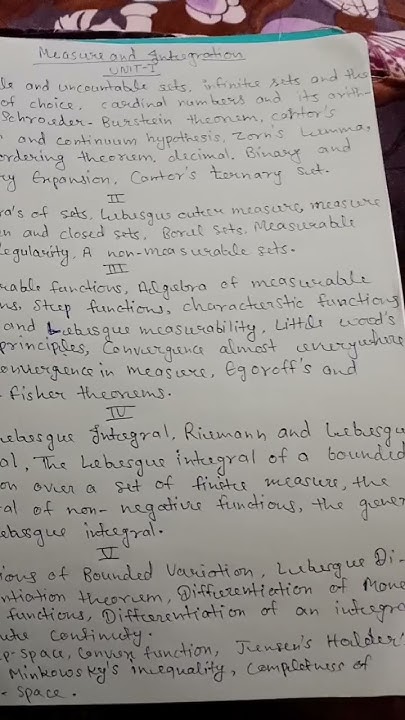 Measure and Integration
UNIT-I
le and uncountable sets, infinite sets and the
of choice, cardinal numbers and its arith-
Schroeder-Burstein theorem, cantor's
and continuum hypothesis, Zorn's Lemma,
ordering theorem, decimal, Binary and
ry Expansion, Cantor's ternary set.
II
ra's of sets, Lebesgue outer measure, measure
en and closed sets, Borel sets, Measurable
egularity, A non-measurable sets.
III
rable functions, Algebra of measurable
ns, Step functions, characterstic functions
and Lebesgue measurability, Little wood's
principles, Convergence almost everywhere
onvergence in measure, Egoroff's and
fisher theorems.
IV
Lebesgue Integral, Riemann and Lebesgu
al, The Lebesgue integral of a bounded
on over a set of finite measure, the
al of non-negative functions, the gener
ebesgue integral.
V
ions of Bounded Variation, Lebesgue Di-
ntiation theorem, Differentiation of Mono
functions, Differentiation of an integra
ute Continuity.
p-space, Convex function, Jensen's Holder's
Minkowsky's inequality, Completness of
- space.